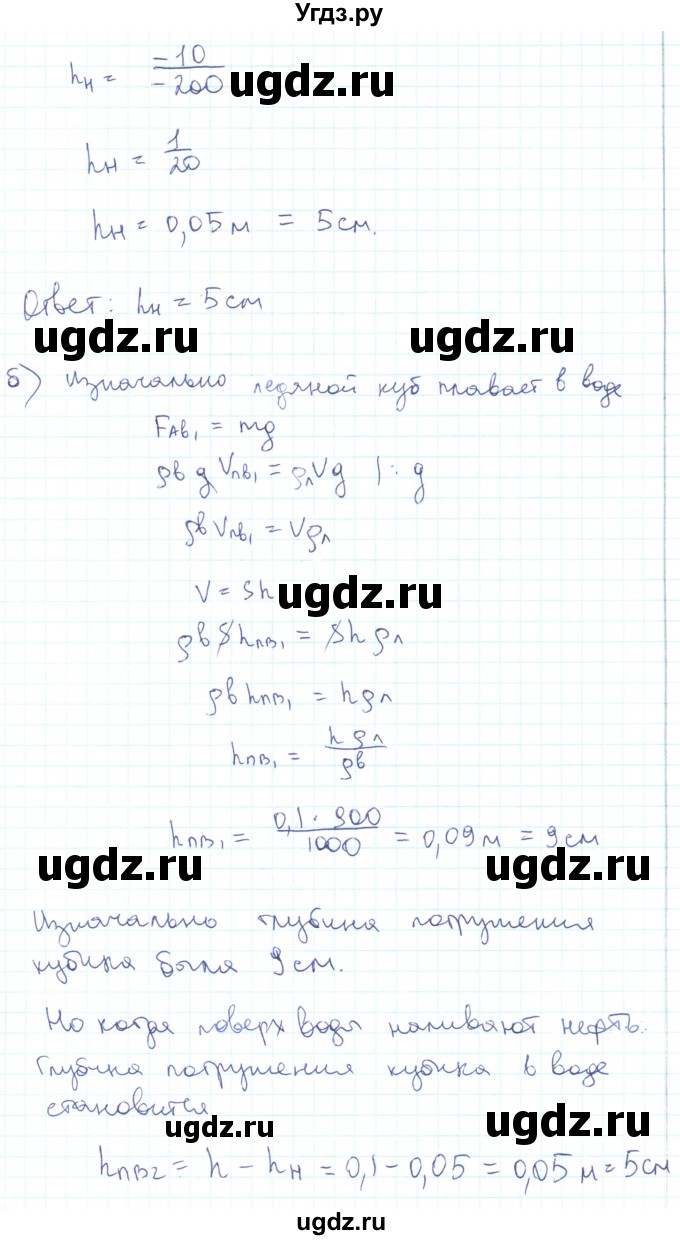 Угдз.ру
hн = -10/-200
ugdz.ru
hн = 1/20
hн = 0,05 м = 5 см.
Ответ: hн = 5 см
ugdz.ru ugdz.ru
б) Изначально ледяной куб плавает в воде
Fав₁ = mg
ρв g Vпв₁ = ρл V g | : g
ρв Vпв₁ = V ρл
V = Sh
ugdz.ru
ρв S hпв₁ = S h ρл
ρв hпв₁ = h ρл
hпв₁ = h ρл/ρв
hпв₁ = 0,1 · 900/1000 = 0,09 м = 9 см
ugdz.ru ugdz.ru
Изначально глубина погружения
кубика была 9 см.
Но когда поверх воды наливают нефть.
Глубина погружения кубика в воде
становится
ugdz.ru ugdz.ru
hпв2 = h - hн = 0,1 - 0,05 = 0,05 м = 5 см
ugdz.ru